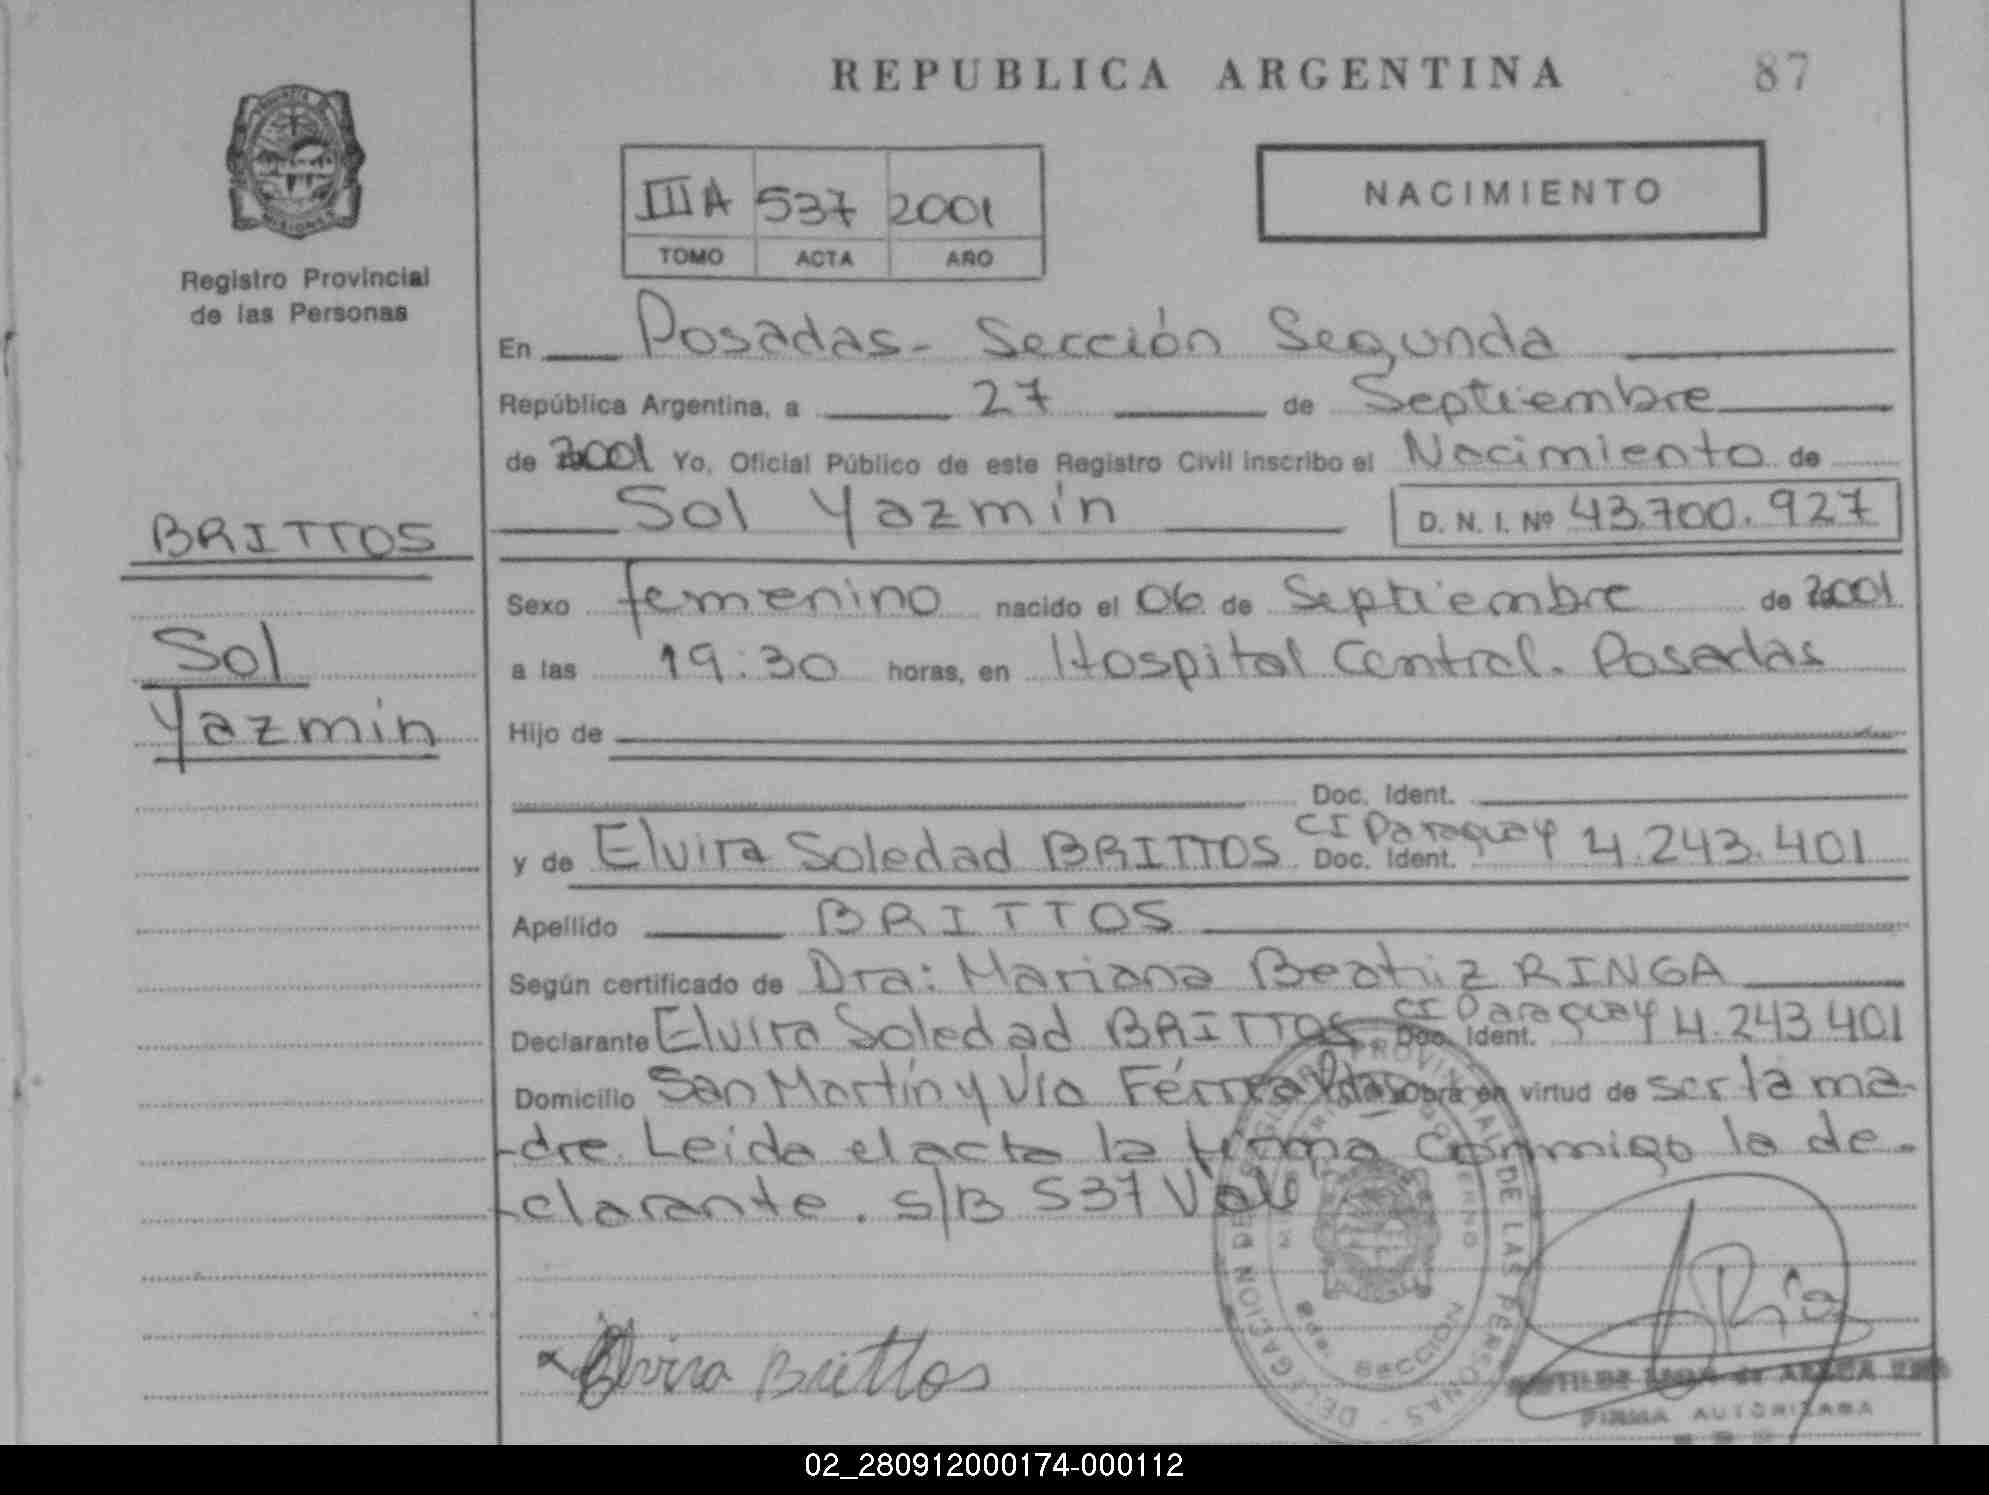 REPUBLICA ARGENTINA
87
Registro Provincial
de las Personas
III A 537 2001
TOMO ACTA AÑO
NACIMIENTO
En Posadas - Sección Segunda
República Argentina, a 27 de Septiembre
de 2001 Yo, Oficial Público de este Registro Civil inscribo el Nacimiento de
Sol Yazmín D. N. I. Nº 43.700.927
BRITTOS
Sol
Yazmín
Sexo femenino nacido el 06 de Septiembre de 2001
a las 19:30 horas, en Hospital Central. Posadas
Hijo de
Doc. Ident.
y de Elvira Soledad BRITTOS Doc. Ident. CI Paraguay 4.243.401
Apellido BRITTOS
Según certificado de Dra: Mariana Beatriz RINGA
Declarante Elvira Soledad BRITTOS Doc. Ident. CI Paraguay 4.243.401
Domicilio San Martín y Vía Férrea Pdas obra en virtud de ser la ma-
dre. Leída el acta la firma conmigo la de-
clarante. S/B 537 Vale
Elvira Brittos
DELEGACION DEL REGISTRO PROVINCIAL DE LAS PERSONAS
2da. SECCION
FIRMA AUTORIZADA
02_280912000174-000112